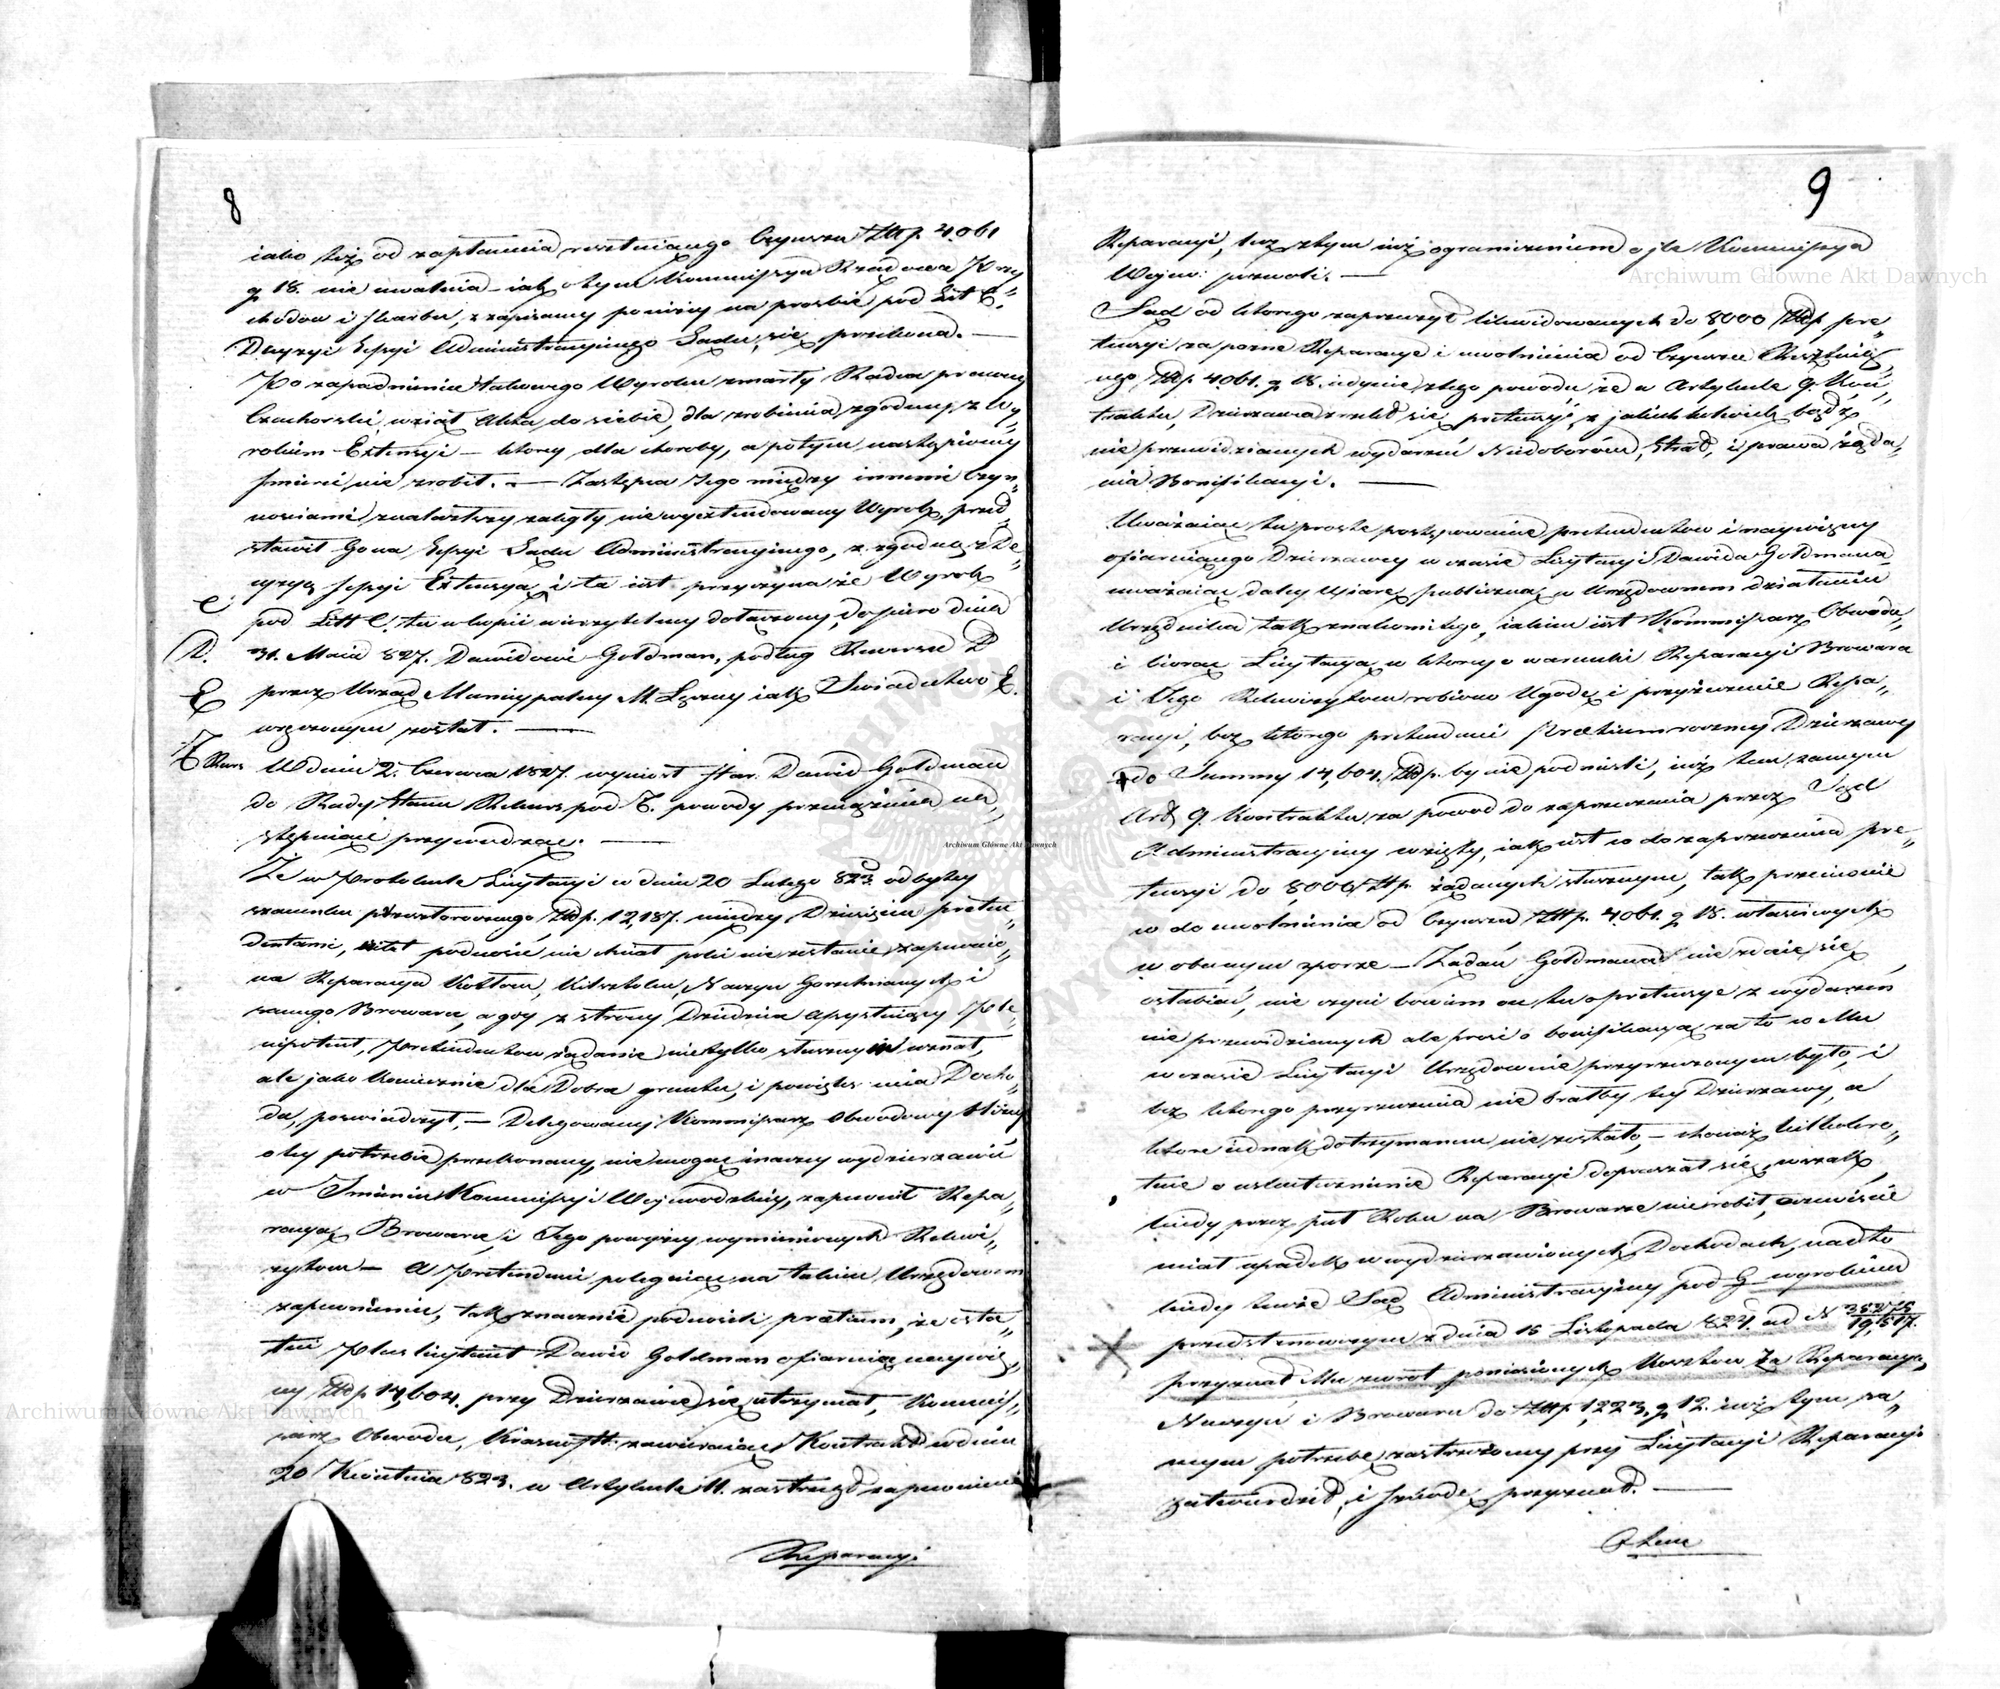 8
iako też od zapłacenia resztuiącego Czynszu Złtp 4061
g 18. nie uwalnia – iak o tym Kommissya Rządowa Przy„
chodów i Skarbu, z zapisaney poniżey na prośbie pod Lit C.
Decyzyi Sessyi Administracyinego Sądu, się przekona. —
Po zapadnieniu takowego Wyroku zmarły Radca prawny
Czachorski, wziął Akta do siebie, dla zrobienia zgodney z Wy„
rokiem Extensyi – ktorey dla choroby, a potym nastąpioney
śmierci nie zrobił. — Zastępca Jego między innemi Czyn„
nościami znalazłszy zaległy nie wyextendowany Wyrok, przed
stawił Go na Sessyi Sądu Administracyinego, z zgodną z De„
cyzyą Sessyi Extensyą, i ta iest przyczyna że Wyrok
C.
pod Litt C. tu w kopii wierzytelney dołączony, dopiero dnia
D.
31. Maia 827. Dawidowi Goldman, podług Rewersu D
E
przez Urząd Municypalny M. Łęczny iak Świadectwo E.
wręczonym został. —
F Rekurs
W dniu 2. Czerwca 1827. wyniosł Star. Dawid Goldman
do Rady Stanu Rekurs pod F. powody przeciwienia na„
stępuiące przywodząc. —
Że w Protokule Licytacyi w dniu 20 Lutego 823 odbytey
szacunku pierwotorocznego Złtp. 12,187. między Dzisieiu preten„
dentami, nikt podnosić nie chciał poki nie zostanie zapewnio„
na Reparacya Kotłow, Kitsztoku, Naczyn Gorzelnianych i
samego Browaru, a gdy z strony Dziedzica Assystuiący Ple„
nipotent, Pretendentow żądanie nie tylko słusznym uznał,
ale jako koniecznie dla Dobra gruntu, i powiększenia Docho„
du, poswiadczył, – Delegowany Kommissarz Obwodowy ktory
o tey potrzebie przekonany, nie mogąc inaczey wydzierzawić
w Imieniu Kommissyi Wojewodzkiey, zapewnił Repa„
racyą Browaru, i Jego powyżey wymienionych Rekwi„
zytow – A Pretendenci polegaiąc na takim Urzędowem
zapewnieniu, tak znacznie podnosili praetium, że osta„
tni Plus licytant Dawid Goldman ofiaruiąc naywięk„
szy Złtp 14,604. przy Dzierzawie się utrzymał, Kommis„
sarz Obwodu, Krasnost: zawieraiąc Kontrakt w dniu
20 Kwietnia 823. w Artykule 11. zastrzegł zapewnienie
Reparacyi
9
Reparacyi, lecz z tym iuż ograniczeniem o jle Kommissya
Wojew: pozwoli. —
Sąd od ktorego zaprzeczył likwidowanych do 8000 Złtp pre„
tensyi za pozne Reparacye i uwolnienia od Czynszu Resztuią„
cego Złtp 4061. g 18. iedynie z tego powodu, że w Artykule 9. Kon„
traktu, Dzierzawca zrzekł się pretensyi, z jakichkolwiek bądź
nie przewidzianych wydarzeń Niedoborów, Strat, i prawa żąda„
nia Bonifikacyi. —
Uważaiąc tu proste postępowanie pretendentow i naywięcey
ofiaruiącego Dzierzawcy w czasie Licytacyi Dawida Goldmana
uważaiąc daley Wiarę publiczną w Urzędowem działaniu
Urzędnika tak znakomitego, iakim iest Kommissarz Obwodu,
i biorąc Licytacyą w ktorey o warunki Reparacyi Browaru
i Jego Rekwizytow robiono Ugodę i przyrzeczenie Repa„
racyi, bez ktorego pretendenci Praetium roczney Dzierzawy
do Summy 14,604. Złtp. by nie podnieśli, iuż tem samym
Art 9. Kontraktu za powod do zaprzeczenia przez Sąd
Administracyiny wzięty, iak iest co do zaprzeczenia pre„
tensyi do 8,000 Złtp. żądanych słusznym, tak przeciwnie
co do uwolnienia od Czynszu Złtp. 4061. g 18. właściwych
w obecnym sporze – Żądań Goldmana nie zdaie się
osłabiać, nie czyni bowiem on tu o pretensye z wydarzeń
nie przewidzianych ale prosi o bonifikacyą za to co Mu
w czasie Licytacyi Urzędownie przyrzeczonym było, i
bez ktorego przyrzeczenia nie brałby tey Dzierzawy, a
ktore iednak dotrzymanem nie zostało, – chociaż kilkokro„
tnie o uskutecznienie Reparacyi dopraszał się, wszak
kiedy przez puł Roku na Browarze nie robił, oczewiście
miał upadek w wydzierzawionych Dochodach, nadto
kiedy tenże Sąd Administracyiny pod G wyrokiem
przedstanowczym z dnia 15 Listopada 824. ad N 35275/19,517.
przyznał Mu zwrot poniesionych kosztow za Reparacyą
Naczyn i Browaru do Złtp 1,223. g 12. iuż tym sa„
mym potrzebę zastrzeżoney przy Licytacyi Reparacyi
zatwierdził, i szkodę przyznał. —